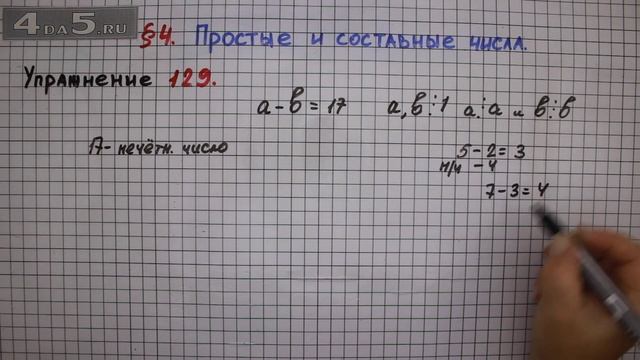 4DA5.RU
§4. Простые и составные числа.
Упражнение 129.
a - b = 17 a, b ⋮ 1 a ⋮ a и b ⋮ b
17 - нечётн. число
5 - 2 = 3
н/ч - ч
7 - 3 = 4